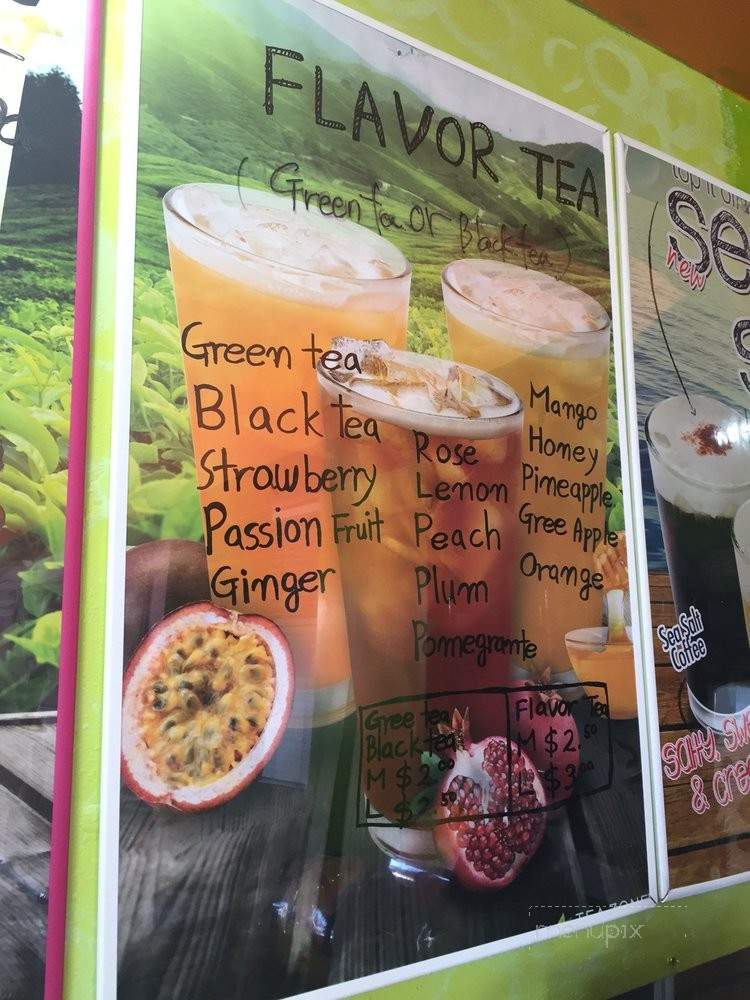 FLAVOR TEA
(Green tea or Black tea)
Green tea
Black tea
Strawberry
Passion Fruit
Ginger
Rose
Lemon
Peach
Plum
Pomegrante
Mango
Honey
Pimeapple
Gree Apple
Orange
Gree tea
Black tea
M $2.00
L $2.50
Flavor Tea
M $2.50
L $3.00
TEA ZONE
menupix
new
Sea Salt
Coffee
Salty, Sw
& Crea